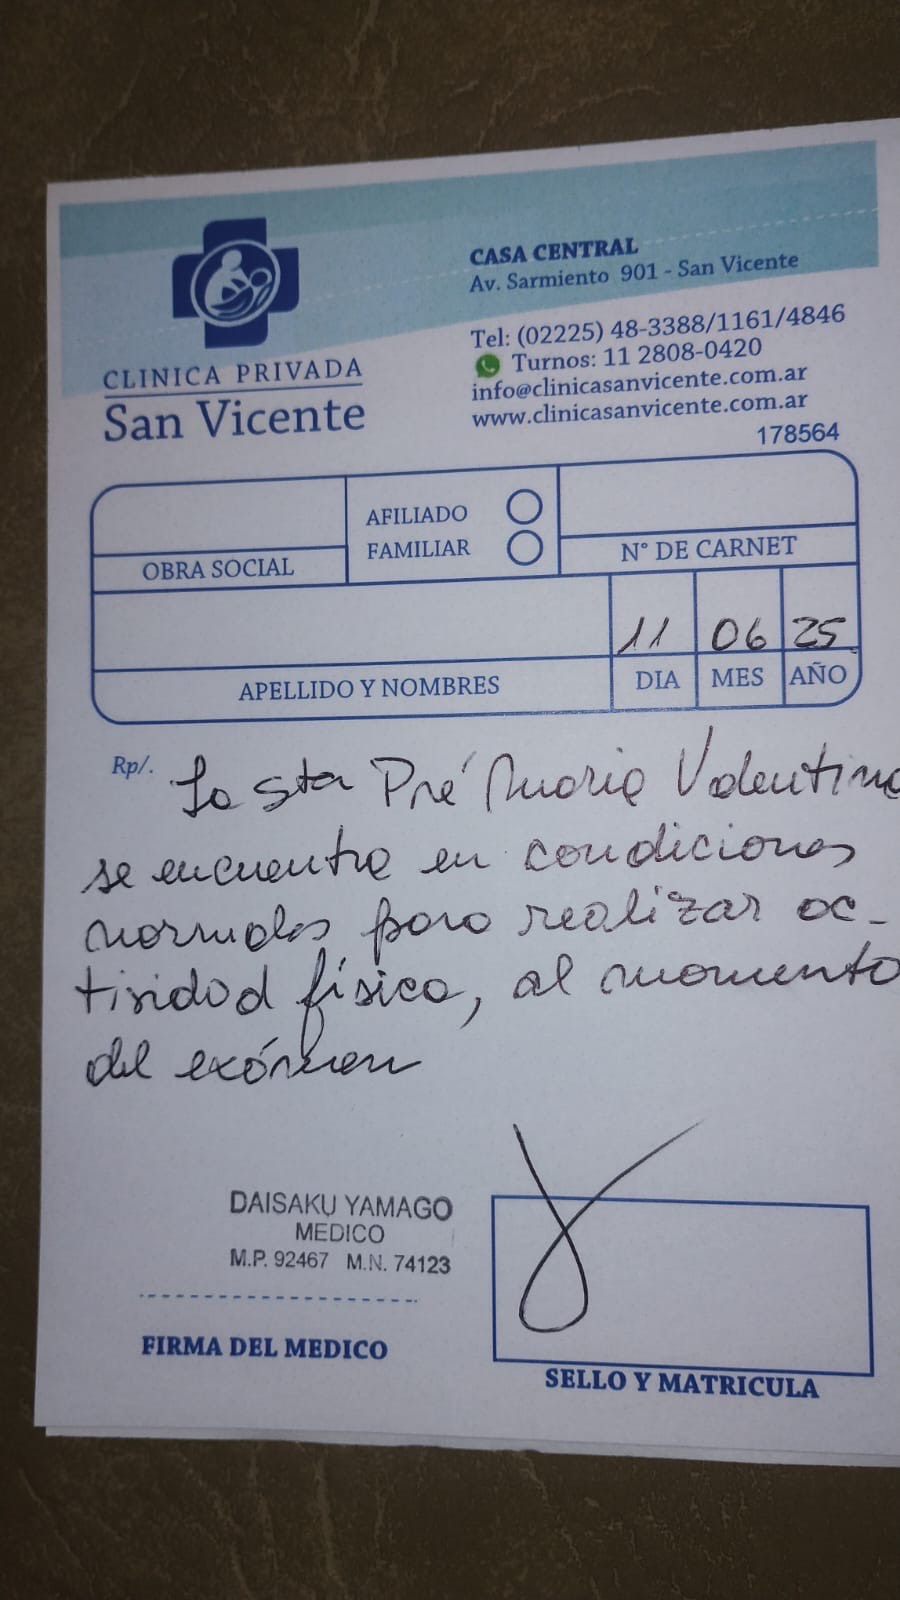 CLINICA PRIVADA
San Vicente
CASA CENTRAL
Av. Sarmiento 901 - San Vicente
Tel: (02225) 48-3388/1161/4846
Turnos: 11 2808-0420
info@clinicasanvicente.com.ar
www.clinicasanvicente.com.ar
178564
OBRA SOCIAL
AFILIADO
FAMILIAR
N° DE CARNET
11 06 25
APELLIDO Y NOMBRES
DIA MES AÑO
Rp/. La sta Pré Maria Valentina
se encuentra en condiciones
normales para realizar ac-
tividad física, al momento
del exámen
DAISAKU YAMAGO
MEDICO
M.P. 92467 M.N. 74123
FIRMA DEL MEDICO
SELLO Y MATRICULA